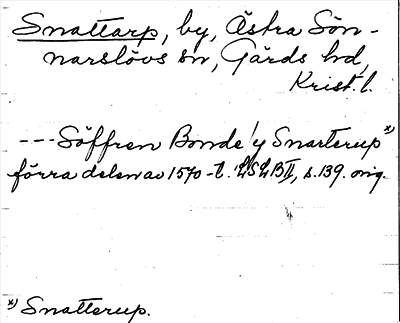 Snattarp, by, Östra Sön-
narslövs sn, Gärds hd,
Krist. l.
--- Söffren Bonde i Snarterup x)
förra delen av 1570-t. LSLB II, s. 139. orig.
x) Snatterup.